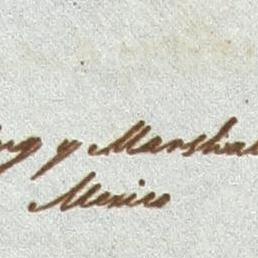 y Marshal
Mexico